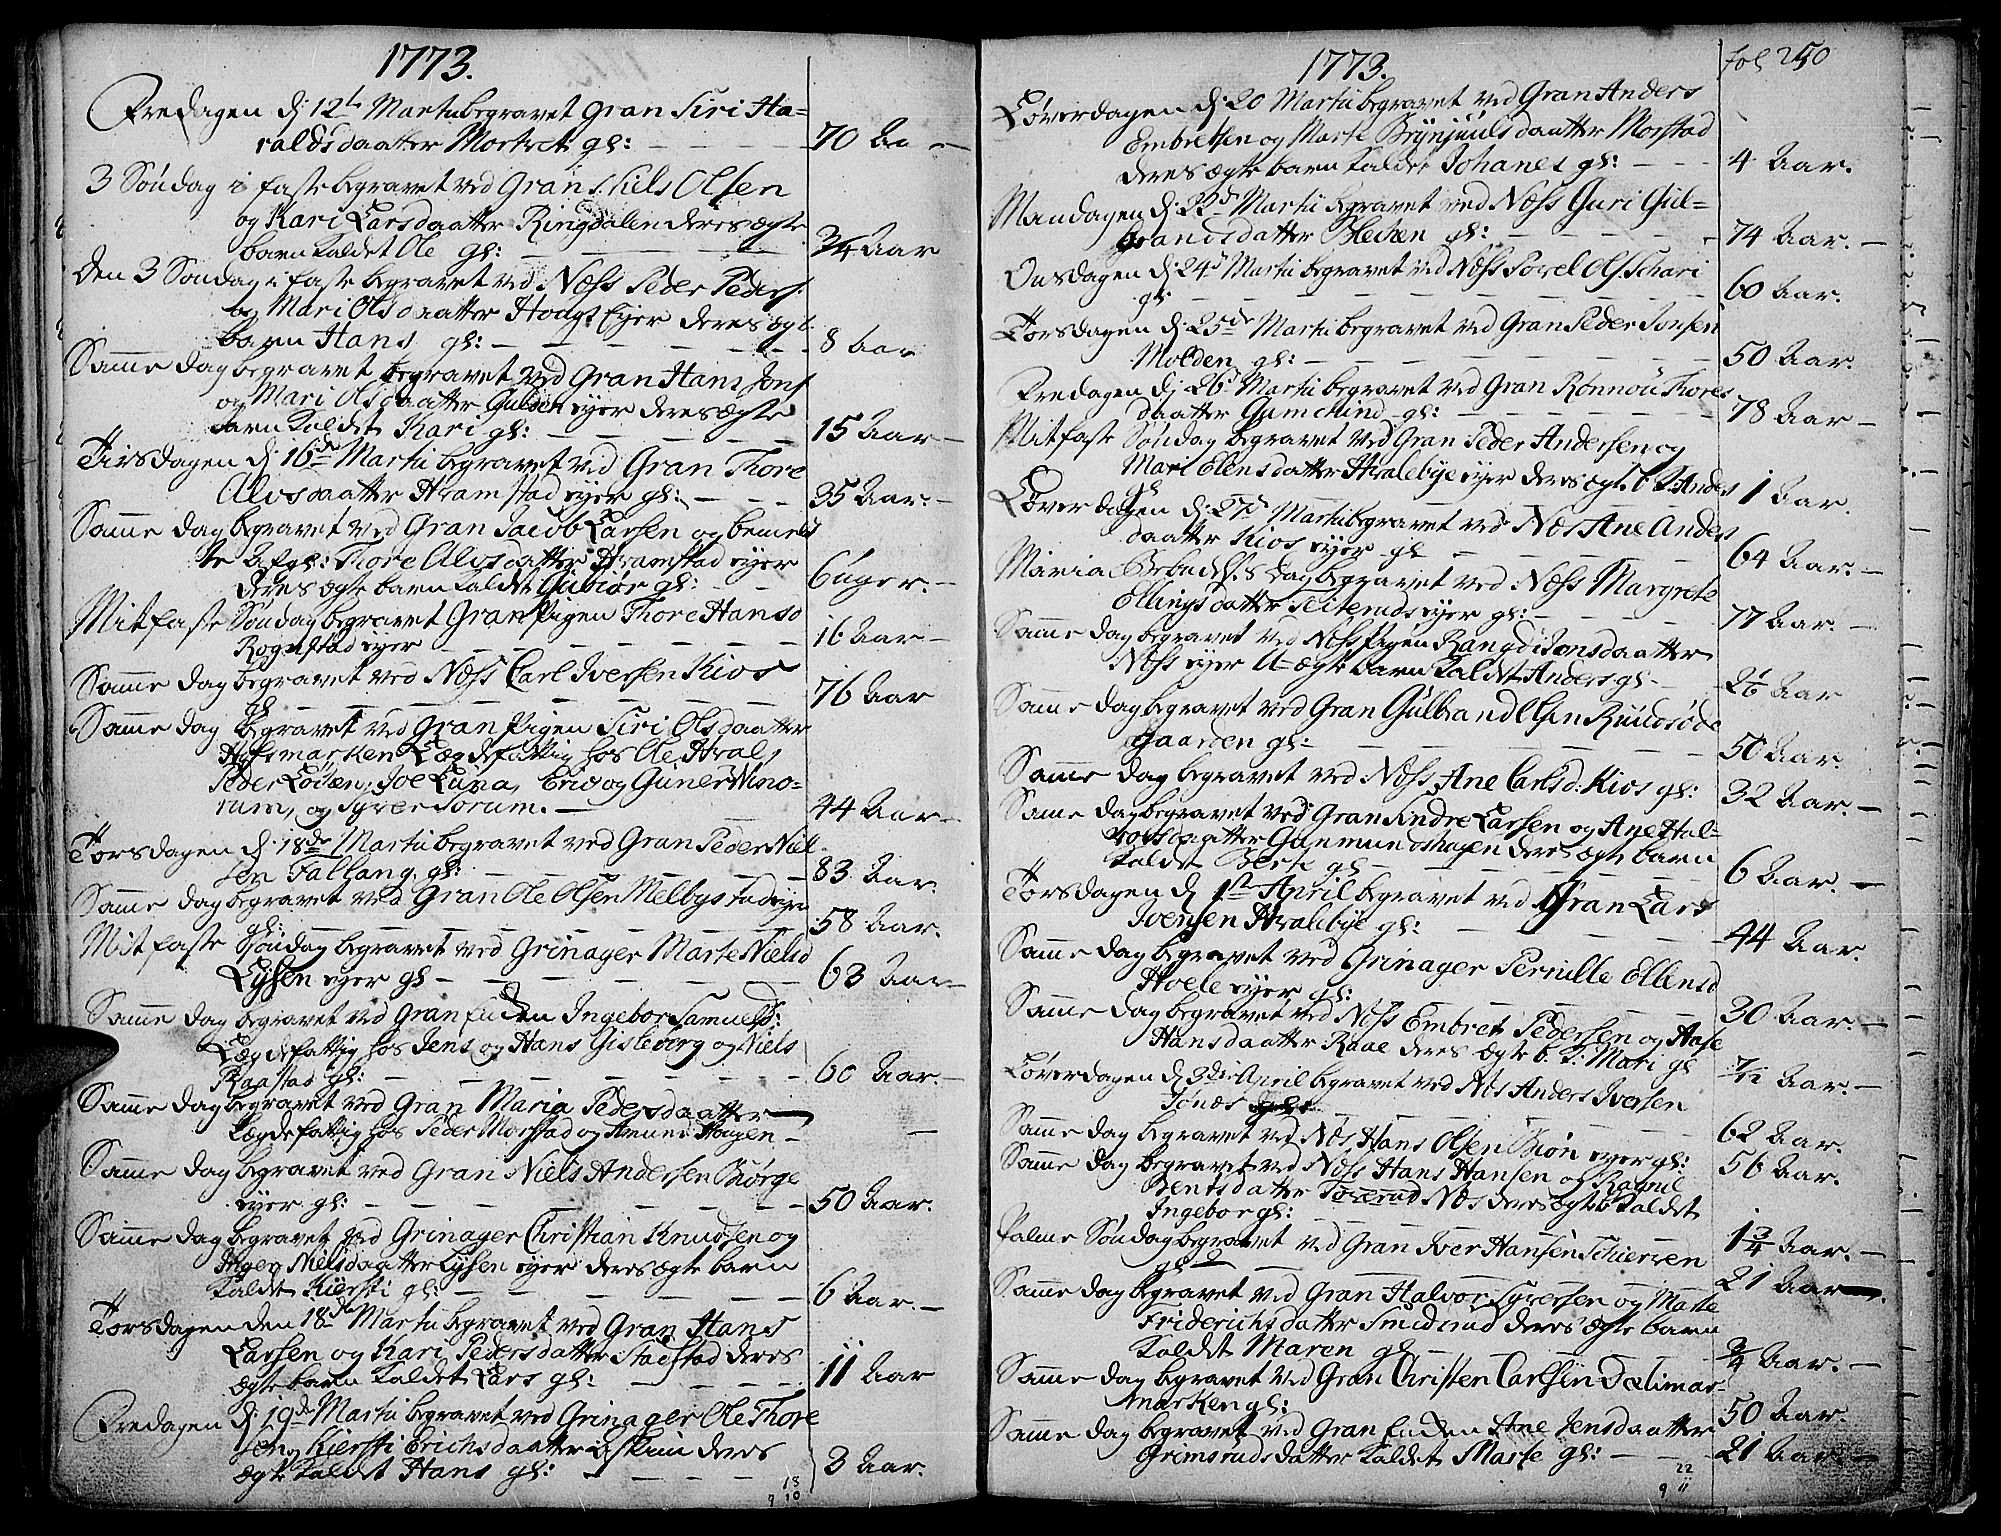 1773.
Fredagen d: 12te Martii begravet Gran Siri Ha-
raldsdaatter Morket: gl: 70 Aar
3 Søndag i faste begravet ved Gran Niels Olsen
og Kari Larsdaatter Ringdalen deres ægte
barn kaldet Ole gl: 3/4 Aar
den 3 Søndag i faste begravet ved Næss Peder Peders:
og Mari Olsdaatter Hougs Eyer deres ægte
barn Hans gl: 8 Aar
Samme dag begravet begravet ved Gran Hans Jons:
og Mari Olsdaatter Gulden eyer deres ægte
barn kaldet Kari gl: 15 Aar
Tirsdagen d: 16de Martii begravet ved Gran Thore
Alvsdaatter Hramstad eyer gl: 35 Aar
Samme dag begravet ved Gran Jacob Larsen og bemeld
te Afgl: Thore Alvsdaatter Hramstad eyer
deres ægte barn kaldet Gubiør gl: 6 uger
Mitfaste Søndag begravet Gran Pigen Thore Hansd
Rognstad eyer 16 Aar
Samme dag begravet ved Næss Carl Iversen Kios
gl 76 Aar
Samme dag begravet ved Gran Pigen Siri Olsdaatter
Hofsmarken Lægdefattig hos Ole Hval,
Peder Loden, Joe Lina, Eric og Guner Vino-
rum, og Syver Sorum. 44 Aar
Torsdagen d: 18de Martii begravet ved Gran Peder Niel
sen Fallang gl: 83 Aar
Samme dag begravet ved Gran Ole Olsen Melbystad eyer
gl: 58 Aar.
Mitfaste Søndag begravet ved Grinager Marte Nielsd
Lysen eyer gl 63 Aar
Samme dag begravet ved Gran Enden Ingebor Samuelsd:
Lægdefattig hos Jens og Hans Gisleberg og Niels
Raastad gl: 60 Aar.
Samme dag begravet ved Gran Maria Pedersdaatter
Lægdefattig hos Peder Morstad og Amund Hagen
Samme dag begravet ved Gran Niels Andersen Biørge
eyer gl: 50 Aar.
Samme dag begravet ved Grinager Christian Knudsen og
Nielsdaatter Lysen eyer deres ægte barn
kaldet Kiersti gl: 6 Aar.
Torsdagen den 18de Martii begravet ved Gran Hans
Larsen og Kari Pedersdatter Stadstad deres
ægte barn kaldet Lars gl: 11 Aar
Fredagen d: 19de Martii begravet ved Grinager Ole Thore
sen og Kiersti Erichsdaatter Askim deres
ægte kaldet Hans gl: 3 Aar.
18
9 10
1773. fol 250
Løverdagen d: 20 Martii begravet ved Gran Anders
Embretsen og Marte Brynjuulsdaatter Morstad
deres ægte barn kaldet Johanes gl: 4 Aar.
Mandagen d: 22de Martii begravet ved Næss Guri Gul-
brandsdatter Blechen gl: 74 Aar.
Onsdagen d: 24de Martii begravet ved Næss Povel Ols: Schari
gl 60 Aar.
Torsdagen d: 25de Martii begravet ved Gran Peder Jonsen
Molden gl: 50 Aar.
Fredagen d: 26de Martii begravet ved Gran Rønnou Thores
daatter Gamchind gl: 78 Aar
Mitfaste Søndag begravet ved Gran Peder Andersen og
Mari Elensdatter Hvalebye eyer deres ægte b. k: Anders
gl 1 Aar.
Løverdagen d: 27de Martii begravet ved Næs Ane Anders
daatter Kios eyer gl 64 Aar.
Maria Bebudels:s dag begravet ved Næss Margrete
Ellingsdatter Teiterudseyer gl: 77 Aar.
Samme dag begravet ved Næss Pigen Rangdi Jonsdaatter
Næss eyer U-ægte barn kaldet Anders gl 2 1/6 Aar
Samme dag begravet ved Gran Gulbrand Elsen Rundsøde
gaarden gl: 50 Aar.
Samme dag begravet ved Næss Ane Carlsd: Kios gl: 32 Aar.
Samme dag begravet ved Gran Andre Larsen og Ane Hal-
vorsdaatter Gunmundshagen deres ægte barn
kaldet Berte gl 6 Aar.
Torsdagen d 1ste April begravet ved Gran Lars
Iversen Hvalebye gl: 44 Aar.
Samme dag begravet ved Grinager Pernille Ellensd
Hvele eyer gl: 30 Aar.
Samme dag begravet ved Næss Embret Pedersen og Aase
Hansdaatter Raae deres ægte b. k: Mari gl 7/12 Aar.
Løverdagen d 3de April begravet ved Næs Anders Iversen
Jonæs 62 Aar.
Samme dag begravet ved Næs Hans Olsen Biøn eyer gl: 56 Aar.
Samme dag begravet ved Næss Hans Hansen og Ragnil
Bentsdatter Torerud Næs deres ægte b kaldet
Ingebor gl: 1 3/4 Aar.
Palme Søndag begravet ved Gran Iver Hansen Schiersen
gl 21 Aar.
Samme dag begravet ved Gran Halvor Syversen og Marte
Friderichsdatter Smidsrud deres ægte barn
kaldet Maren gl 3/4 Aar.
Samme dag begravet ved Gran Christen Carlsen Dælimar-
marken gl: 50 Aar.
Samme dag begravet ved Gran Enden Ane Jensdaatter
Grimsruds datter kaldet Marte gl: 21 Aar.
22
9 11